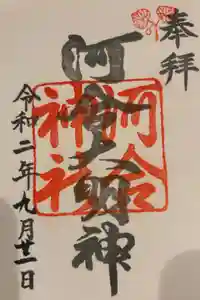 奉拝
河合大明神
河合神社
令和二年九月廿一日